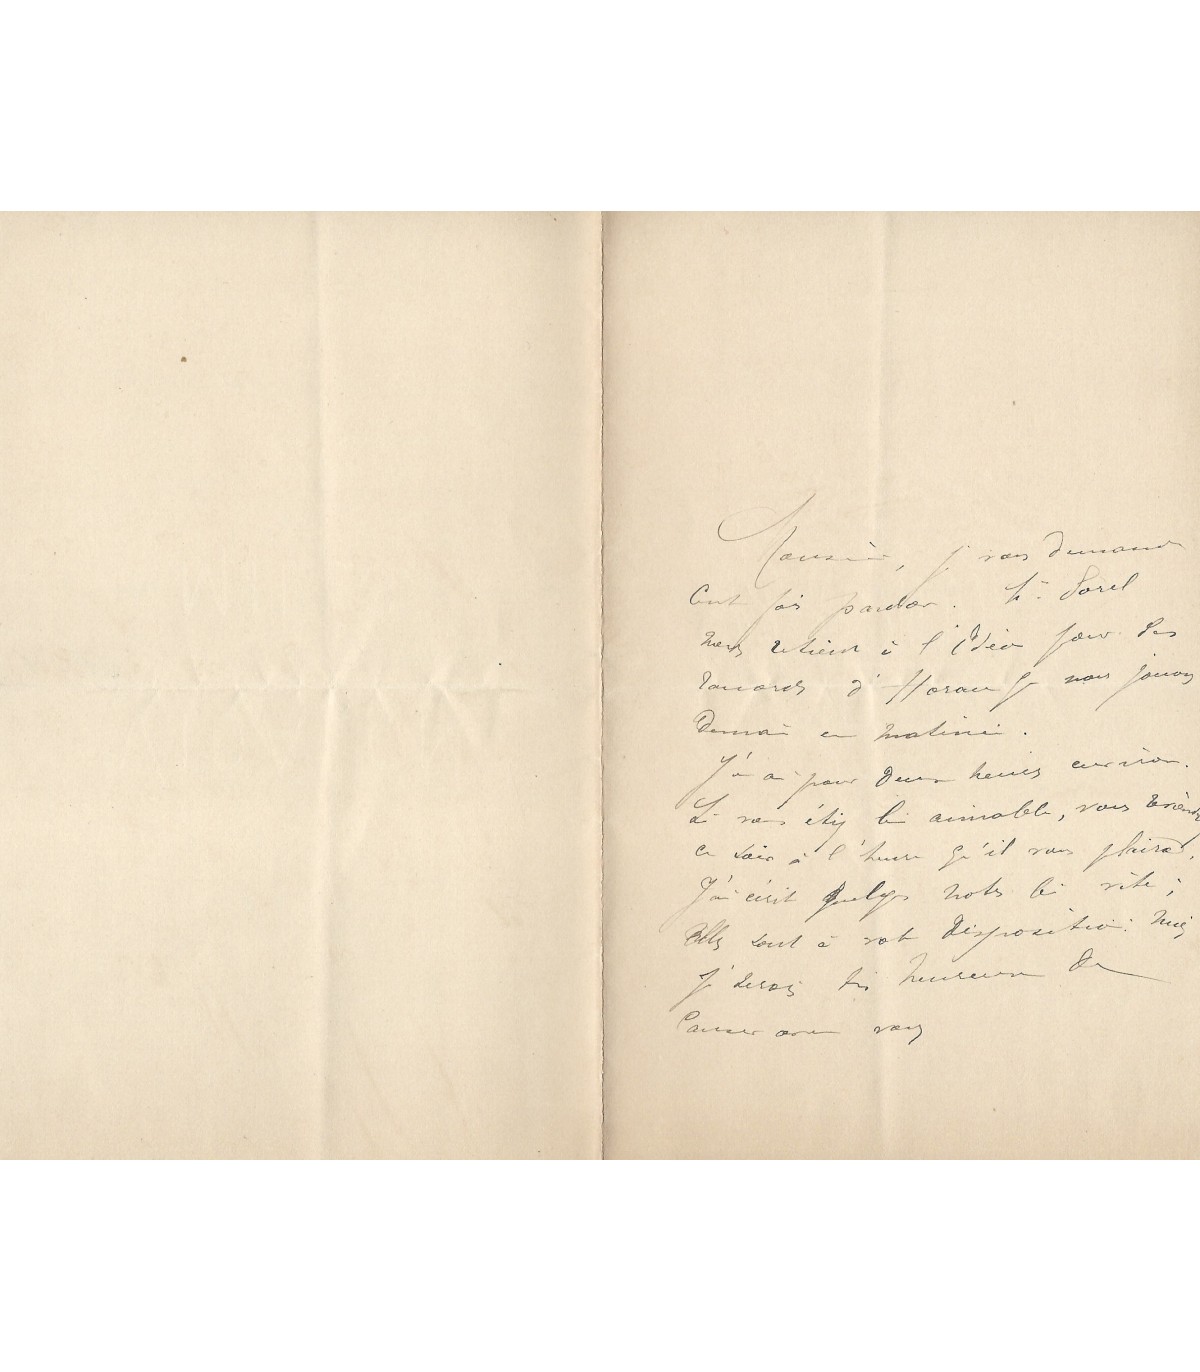 Monsieur, je vous demande
cent fois pardon. Mr Porel
nous retient à l'Odéon pour des
raccords d' que nous jouons
Demain en matinée.
J'en ai pour Deux heures environ.
Si vous étiez bien aimable, vous viendrez
ce soir à l'heure qu'il vous plaira.
J'ai écrit quelques notes bien vite;
Elles sont à votre Disposition: mais
je serais très heureux de
causer avec vous